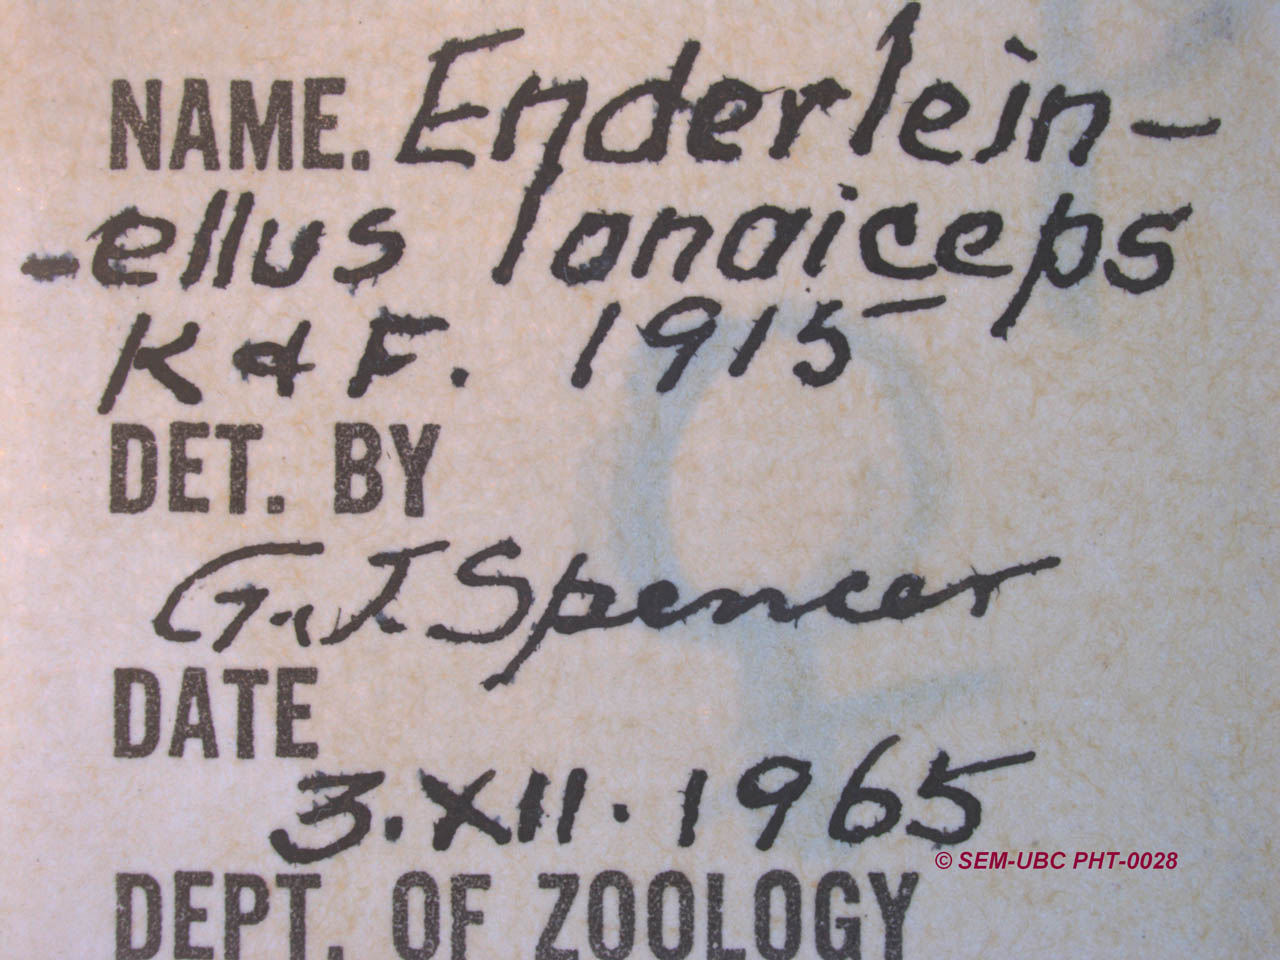 NAME. Enderlein-
-ellus longiceps
K & F. 1915
DET. BY
G. J. Spencer
DATE
3.XII.1965
© SEM-UBC PHT-0028
DEPT. OF ZOOLOGY